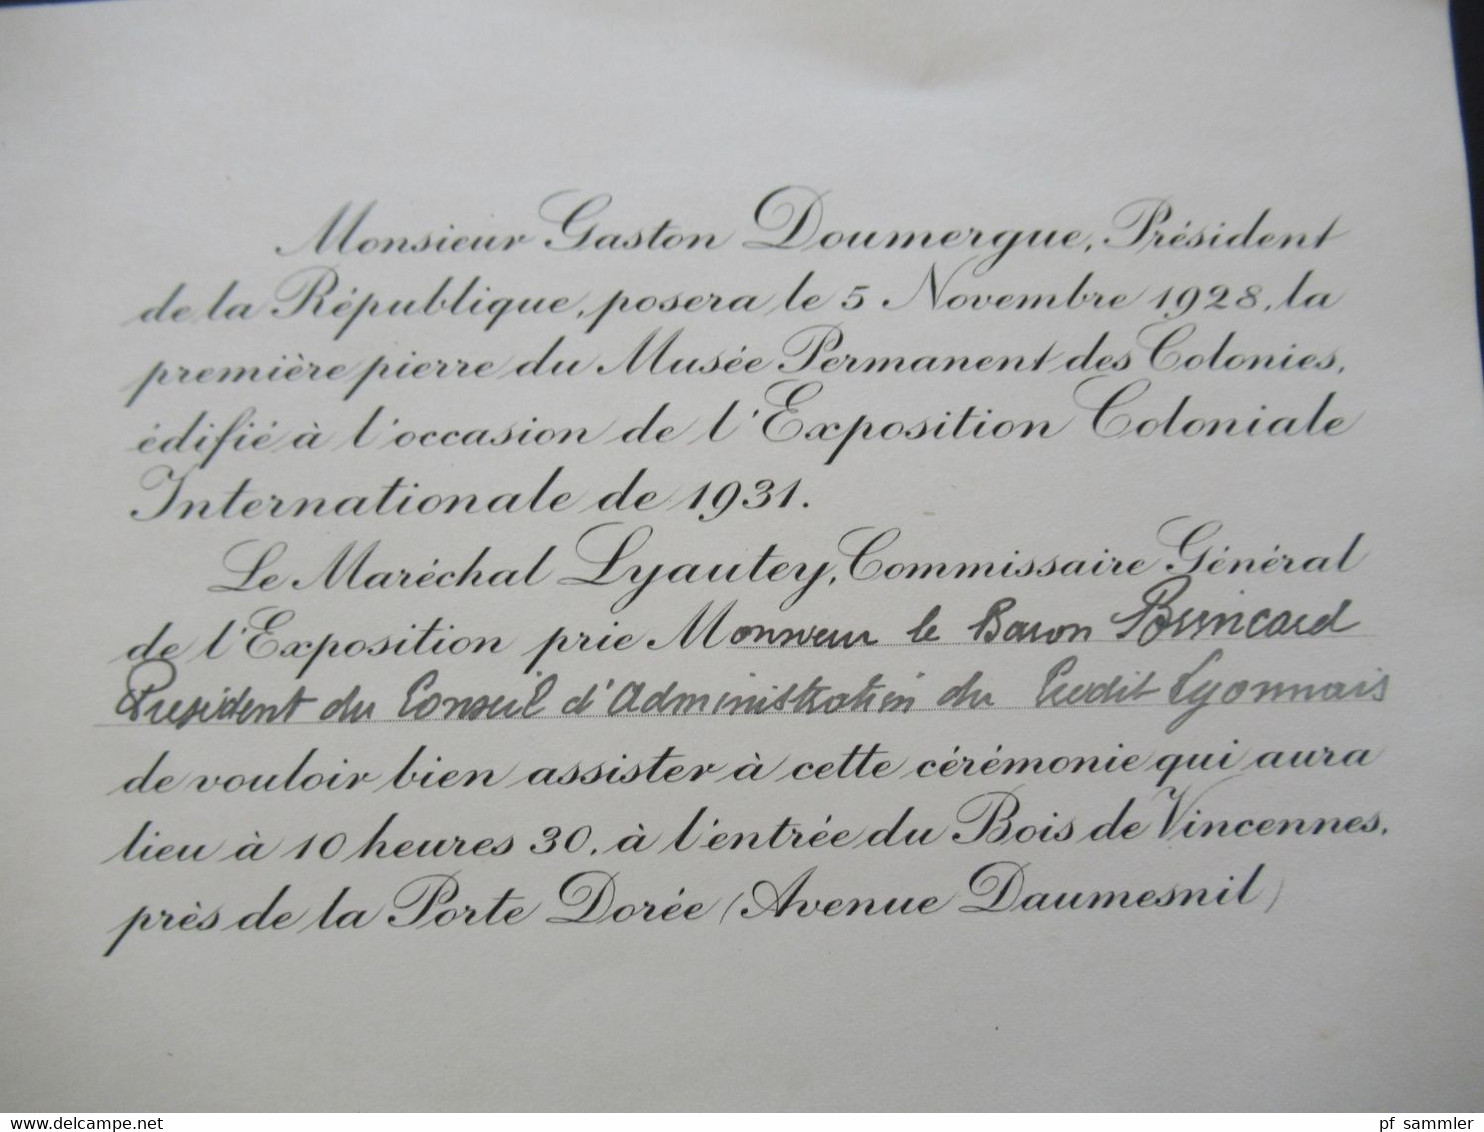 Monsieur Gaston Doumergue, Président
de la République, posera le 5 Novembre 1928, la
première pierre du Musée Permanent des Colonies,
édifié à l'occasion de l'Exposition Coloniale
Internationale de 1931.
Le Maréchal Lyautey, Commissaire Général
de l'Exposition prie Monsieur le Baron Brincard
President du Conseil d'Administration du Credit Lyonnais
de vouloir bien assister à cette cérémonie qui aura
lieu à 10 heures 30, à l'entrée du Bois de Vincennes,
près de la Porte Dorée (Avenue Daumesnil)
www.delcampe.net
pf_sammler